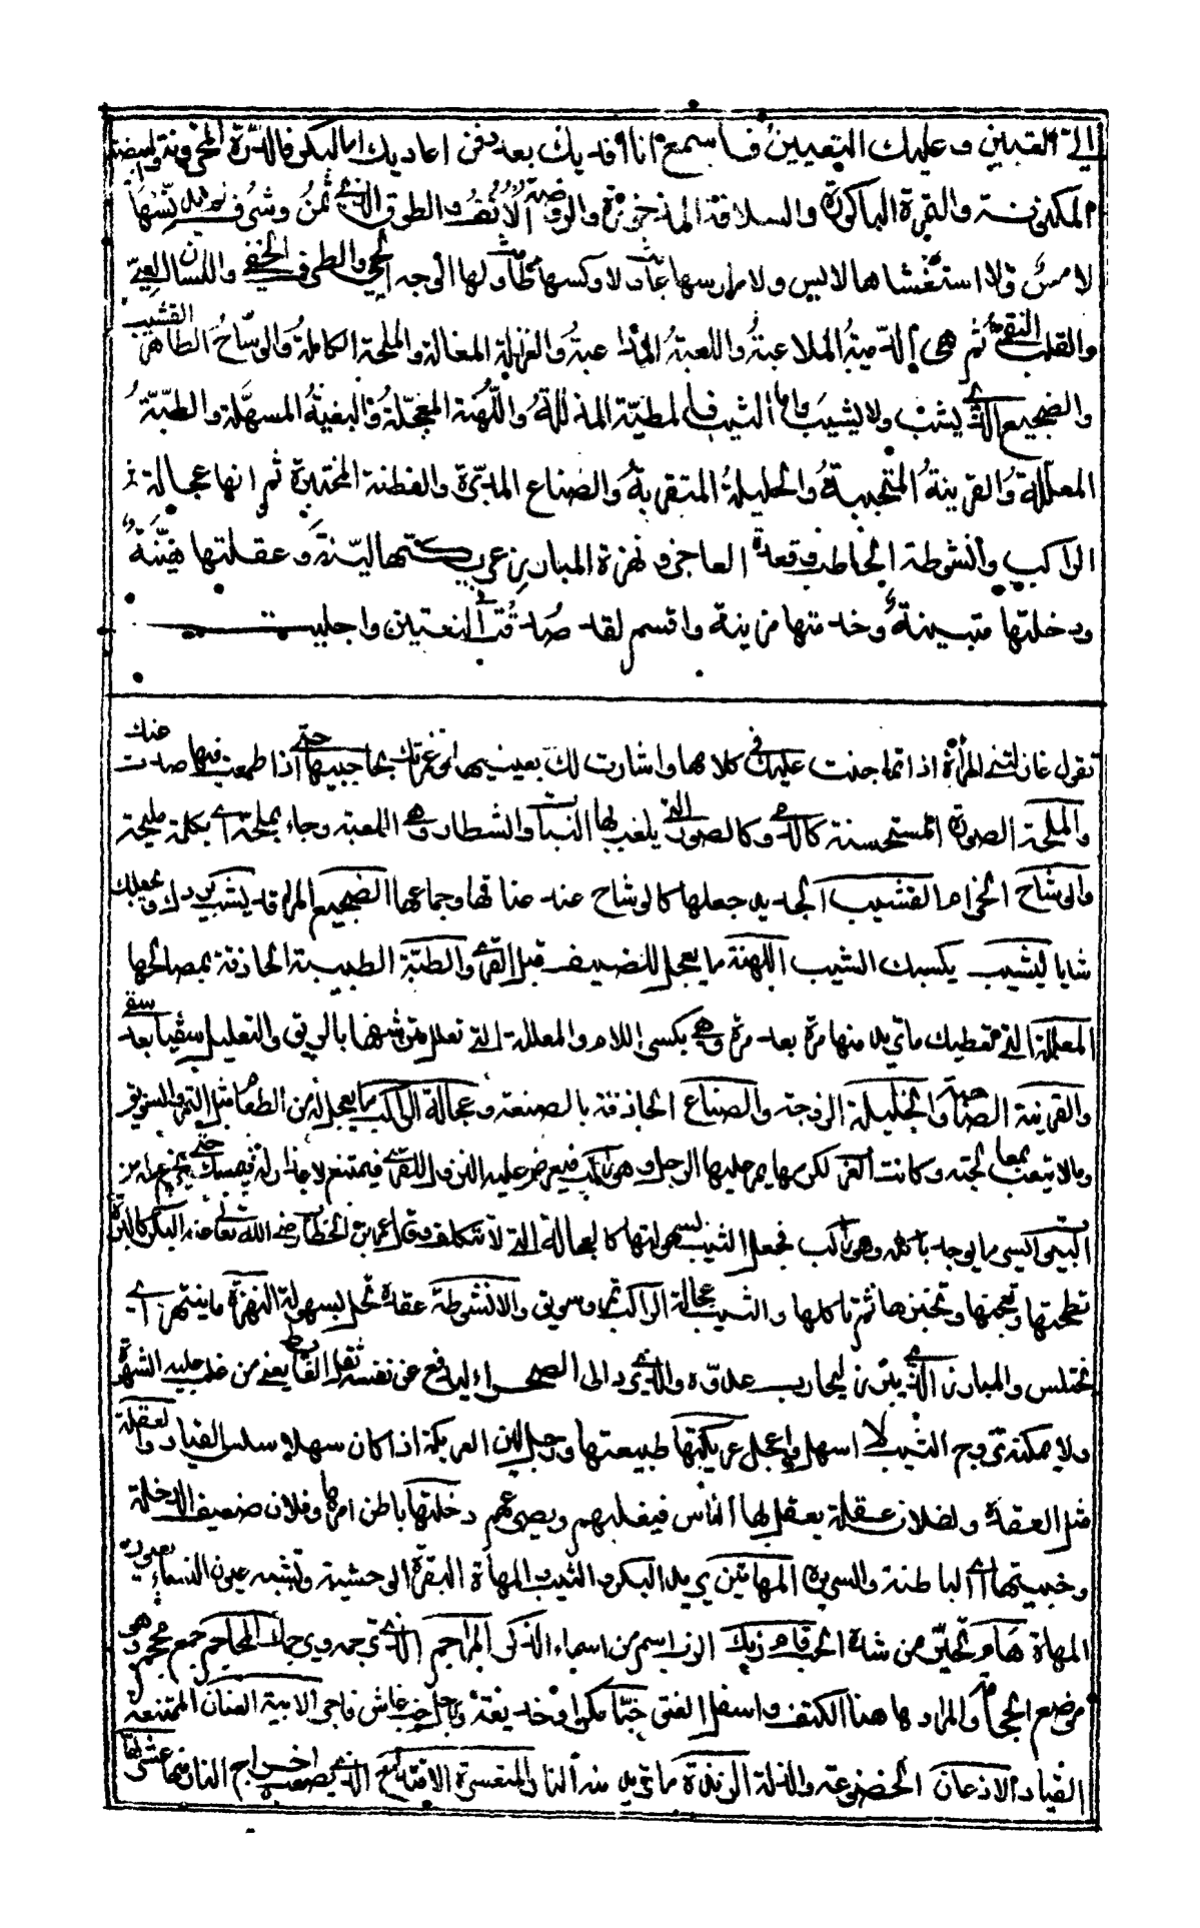 إليّ التبيين وعليك التعيين فاسمع أنا أفديك بعد دفن أعاديك أما البكر فالدرة المخزونة والبيضة
المكنونة والثمرة الباكورة والسلافة المذخورة والروضة الأنف والطوق الذي ثمن وشرف لم يدنسها
لامس ولا استغشاها لابس ولا مارسها عابث ولا وكسها طامث ولها الوجه الحيي والطرف الخفي واللسان العيي
والقلب النقي ثم هي الدمية الملاعبة واللعبة المداعبة والغزالة المغازلة والملحة الكاملة والوشاح الطاهر القشيب
والضجيع الذي يشب ولا يشيب وأما الثيب فالمطية المذللة واللهنة المعجلة والبغية المسهلة والطبة
المعللة والقرينة المتحببة والخليلة المتقربة والصناع المدبرة والفطنة المختبرة ثم إنها عجالة
الراكب وأنشوطة الخاطب وقعدة العاجز ونهزة المبارز عريكتها لينة وعقلتها هينة
ودخلتها متبينة وخدمتها مزينة وأقسم لقد صدقت في النعتين وأجليت
تقول غازلتني المرأة إذا تماجنت عليك في كلامها وأشارت لك بعينيها أو غمزتك بحاجبيها حتى إذا طمعت فيها صدت عنك
والمليحة الصورة المستحسنة كالدمى وكالصور التي يلعب بها النساء والشطار وهي اللعبة وجاء بملحة أي بكلمة مليحة
والوشاح الحزام القشيب الجديد جعلها كالوشاح عند عناقها وجماعها الضجيع المرقد يشب يردك ويجعلك
شابا يشيب يكسبك الشيب اللهنة ما يعجل للضيف قبل القرى والطبة الطبيبة الحاذقة بمصالحها
المعللة التي تعطيك ما تريد منها مرة بعد مرة وهي بكسر اللام والمعللة التي تعلل مترشفها بالريق والتعليل سقيا بعد سقي
والقرينة الصاحبة والخليلة الزوجة والصناع الحاذقة بالصنعة وعجالة الراكب ما يعجل له من الطعام مثل التمر والسويق
وما لا يتعب بمعالجته وكانت العرب لكرمها يمر عليها الرجل وهو راكب فيعرض عليه النزول للقرى فيمتنع
تطحنها وتعجنها وتخبزها ثم تأكلها والثيب عجالة الراكب تمر وسويق والأنشوطة عقدة تحل بسهولة النهزة ما ينتهز أي
يختلس والمبارز الذي يبرز ليحارب عدوه والذي برز إلى الصحراء ليدفع عن نفسه ثقل الغائط يعني من غلب عليه الشهوة
ولا يمكنه تزوج الثيب لأنها أسهل وأعجل عريكتها طبيعتها ورجل لين العريكة إذا كان سهلا سلس القياد والعقلة
مثل العقدة ولفلان عقلة يعقل بها الناس فيغلبهم ويصرعهم دخلتها باطن أمرها وفلان ضعيف الدخلة
وخبيئتها أي الباطنة والسريرة المهاتين يريد البكر والثيب المهاة البقرة الوحشية وتشبه عيون النساء بعيون
المهاة
موضع الحجامة والمراد بها هنا الكتف وأسفل العنق خبا مكرا وخديعة
القياد الإذعان الخضوع والذلة الزندة ما تريد منه النار المتعسرة الاقتداح الذي يصعب إخراج النار منها